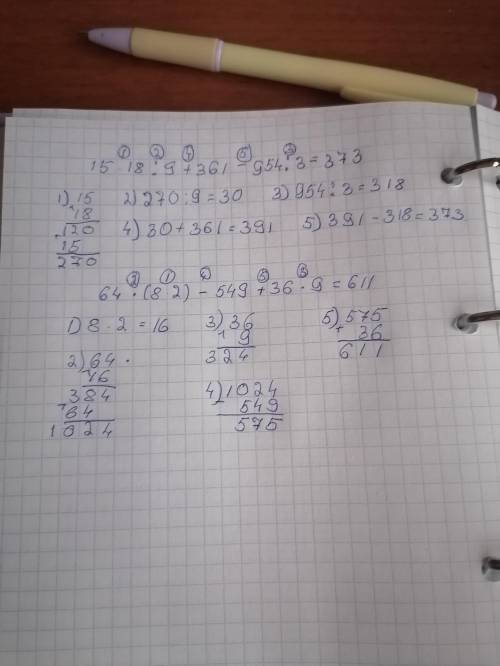 ① ② ④ ⑤ ③
15 · 18 : 9 + 361 - 954 : 3 = 373
1) 15 2) 270 : 9 = 30 3) 954 : 3 = 318
18
120 4) 30 + 361 = 391 5) 391 - 318 = 373
+
15
270
② ① ④ ⑤ ③
64 · (8 · 2) - 549 + 36 · 9 = 611
1) 8 · 2 = 16 3) 36 5) 575
9 + 36
324 611
2) 64 ·
16
384 4) 1024
+ 64 - 549
1024 575